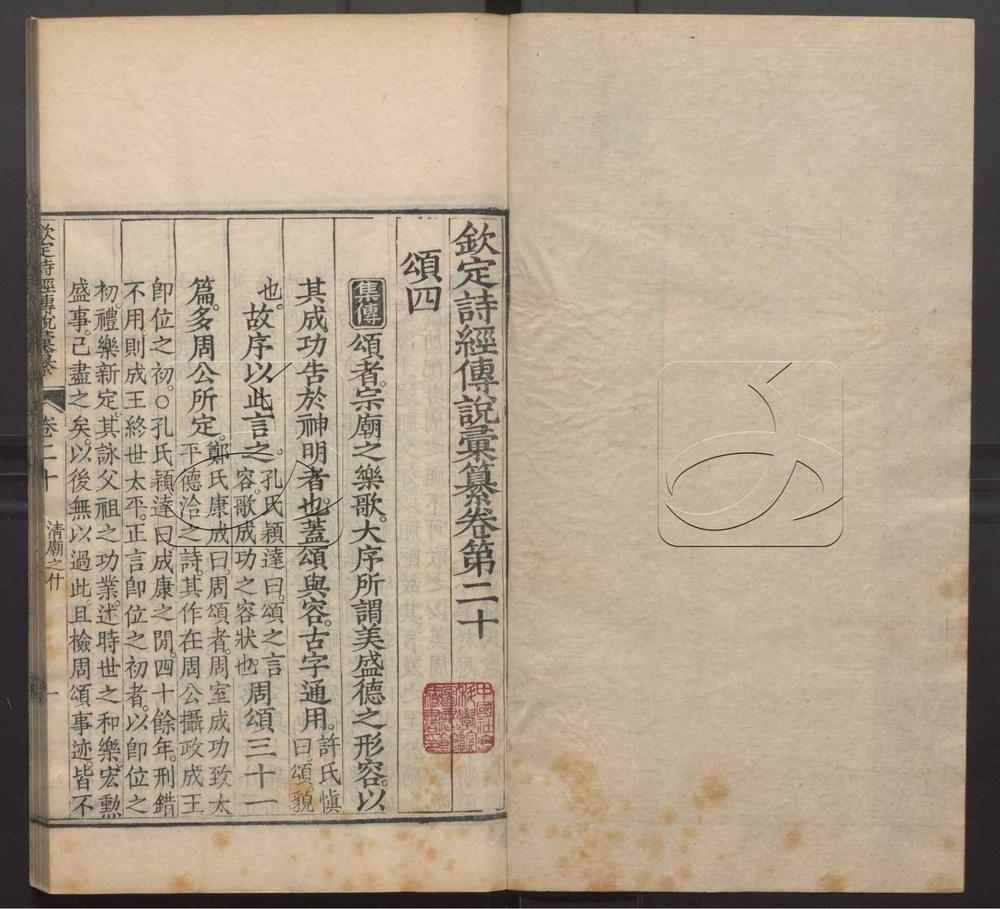 欽定詩經傳說彙纂卷第二十
頌四
集傳 頌者。宗廟之樂歌。大序所謂美盛德之形容。以
其成功告於神明者也。蓋頌與容。古字通用。許氏愼
曰。頌。貌
也。故序以此言之。孔氏穎達曰。頌之言
容。歌成功之容狀也。周頌三十一
篇。多周公所定。鄭氏康成曰。周頌者。周室成功致太
平德洽之詩。其作在周公攝政成王
卽位之初。○孔氏穎達曰。成康之閒。四十餘年。刑錯
不用。則成王終世太平。正言卽位之初者。以卽位之
初。禮樂新定。其詠父祖之功業。述時世之和樂。宏勲
盛事。已盡之矣。以後無以過此。且檢周頌事迹。皆不
欽定詩經傳說彙纂 卷二十 清廟之什 一